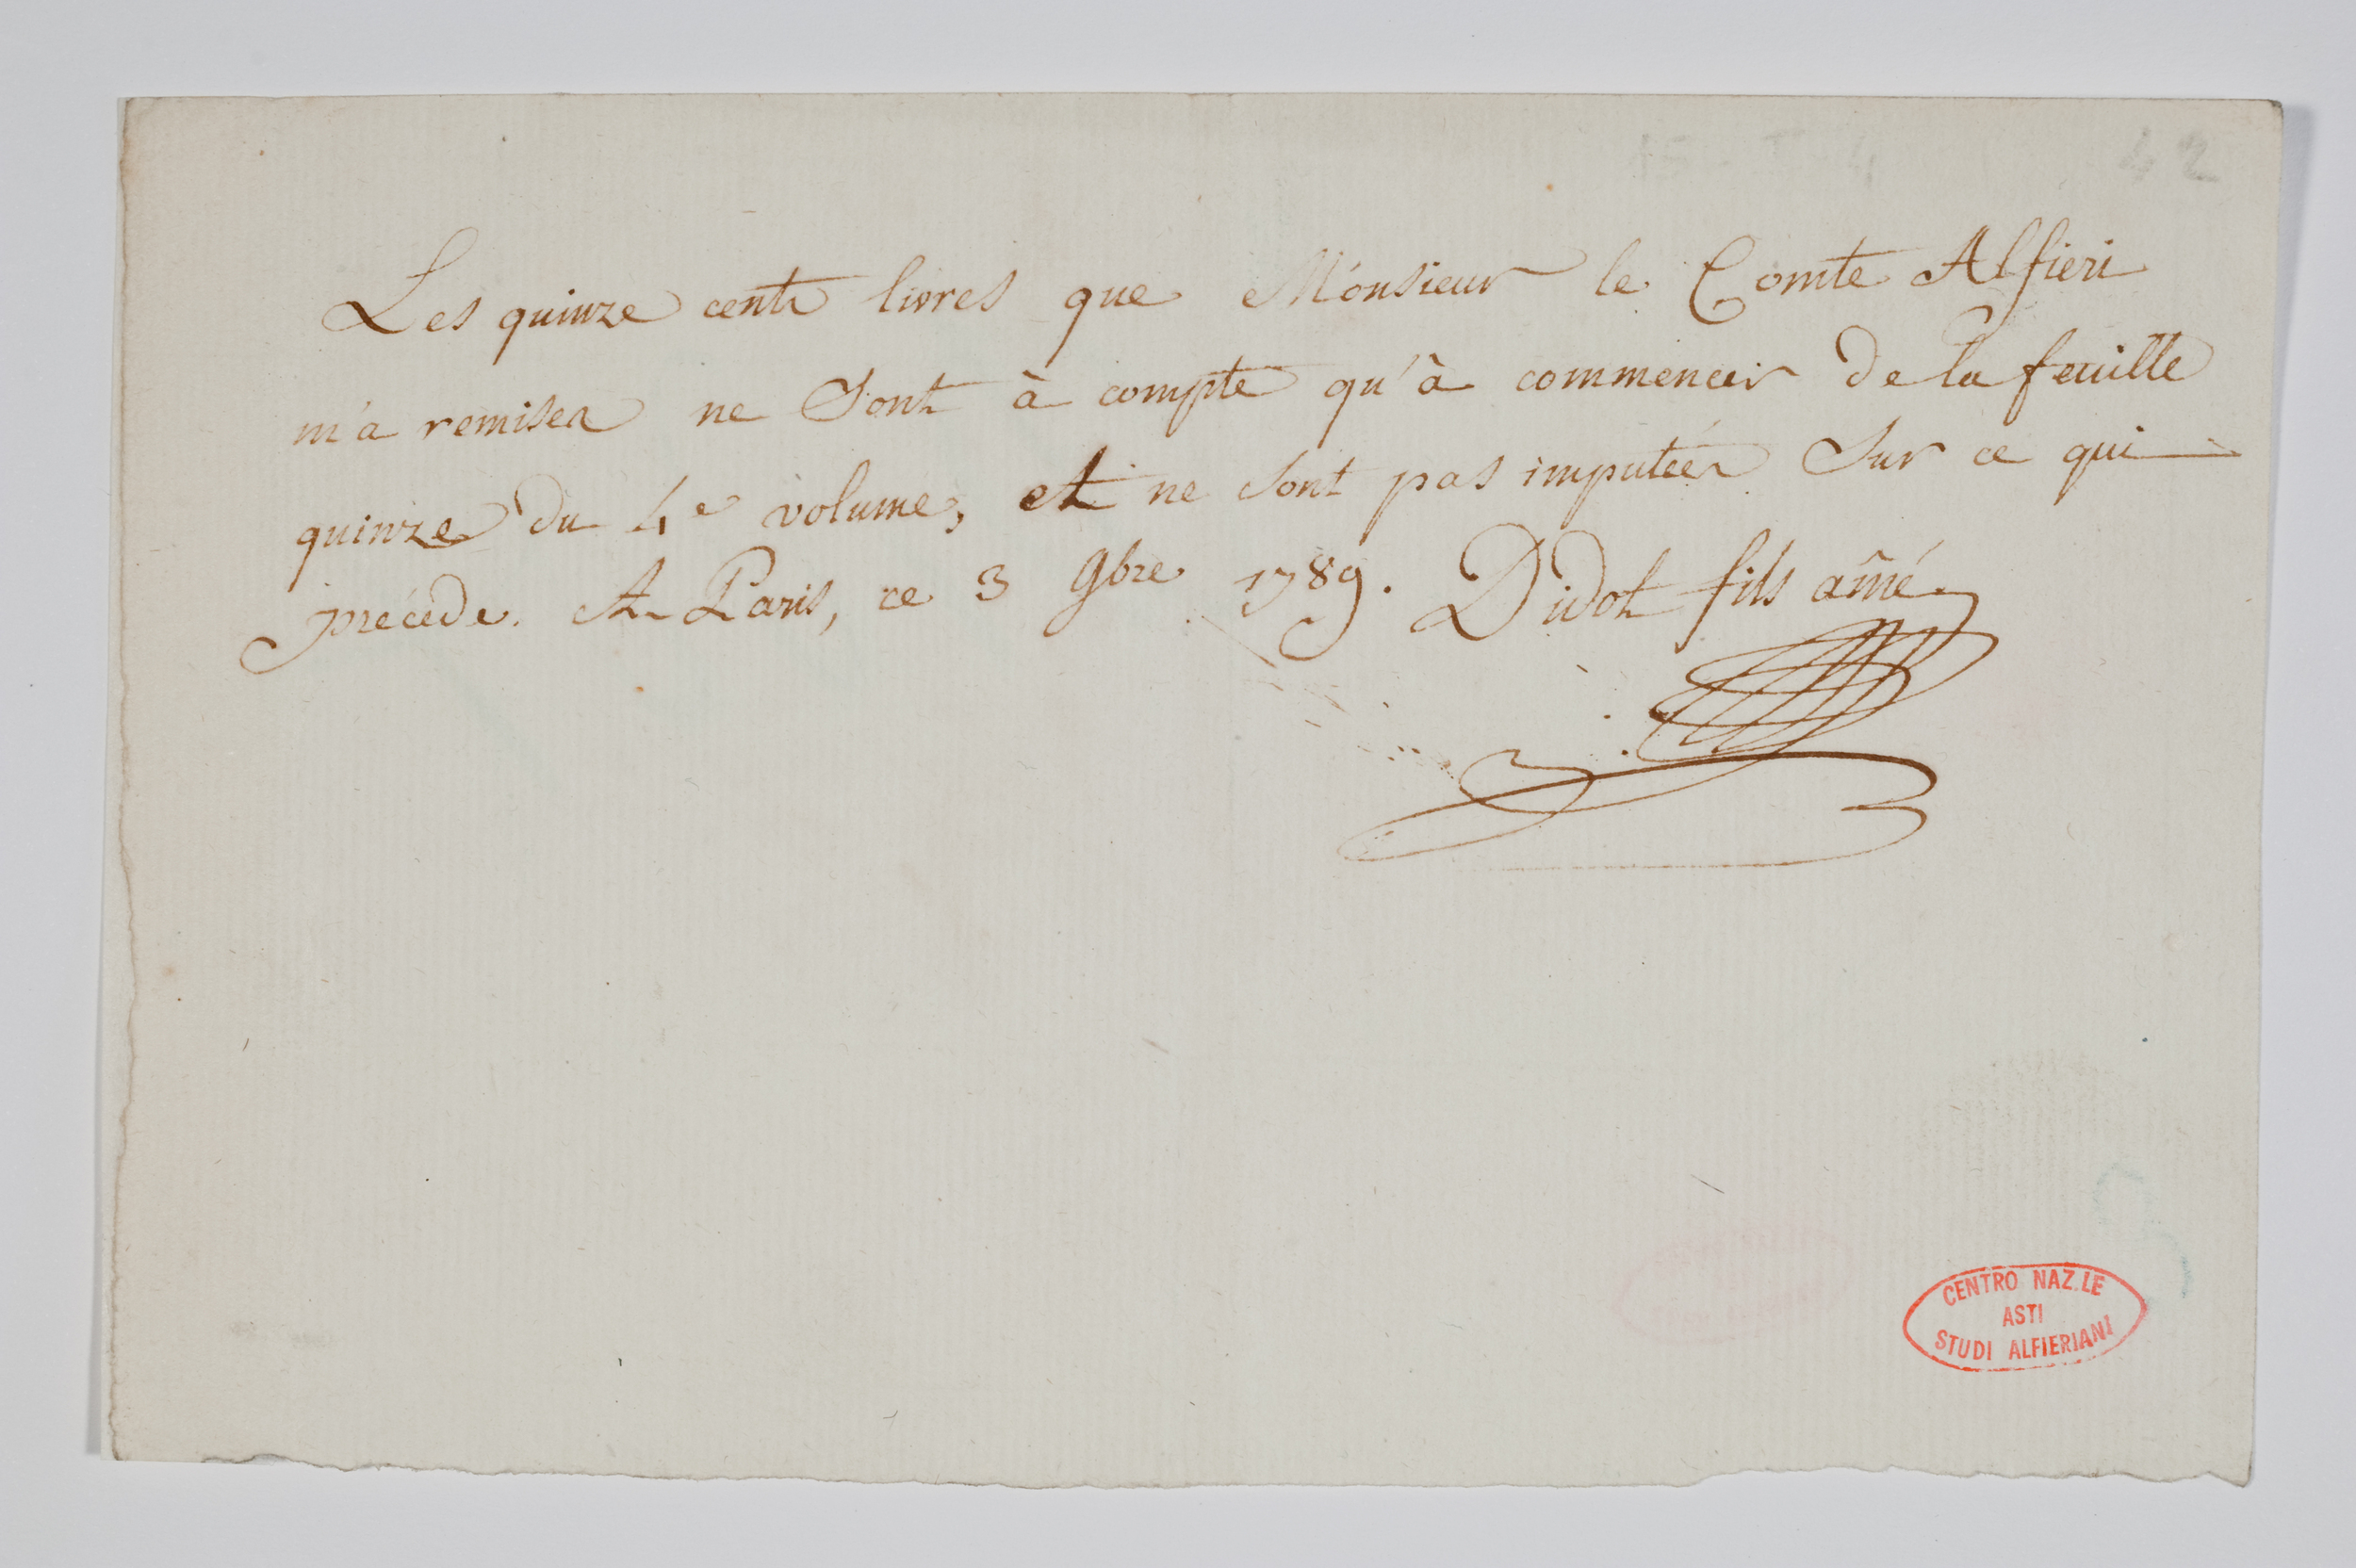 42
Les quinze cents livres que Monsieur le Comte Alfieri
m'a remises ne sont à compte qu'à commencer de la feuille
quinze du 4e volume, et ne sont pas imputées sur ce qui
précéde. A Paris, ce 3 9bre 1789. Didot fils aîné.
CENTRO NAZ.LE
ASTI
STUDI ALFIERIANI